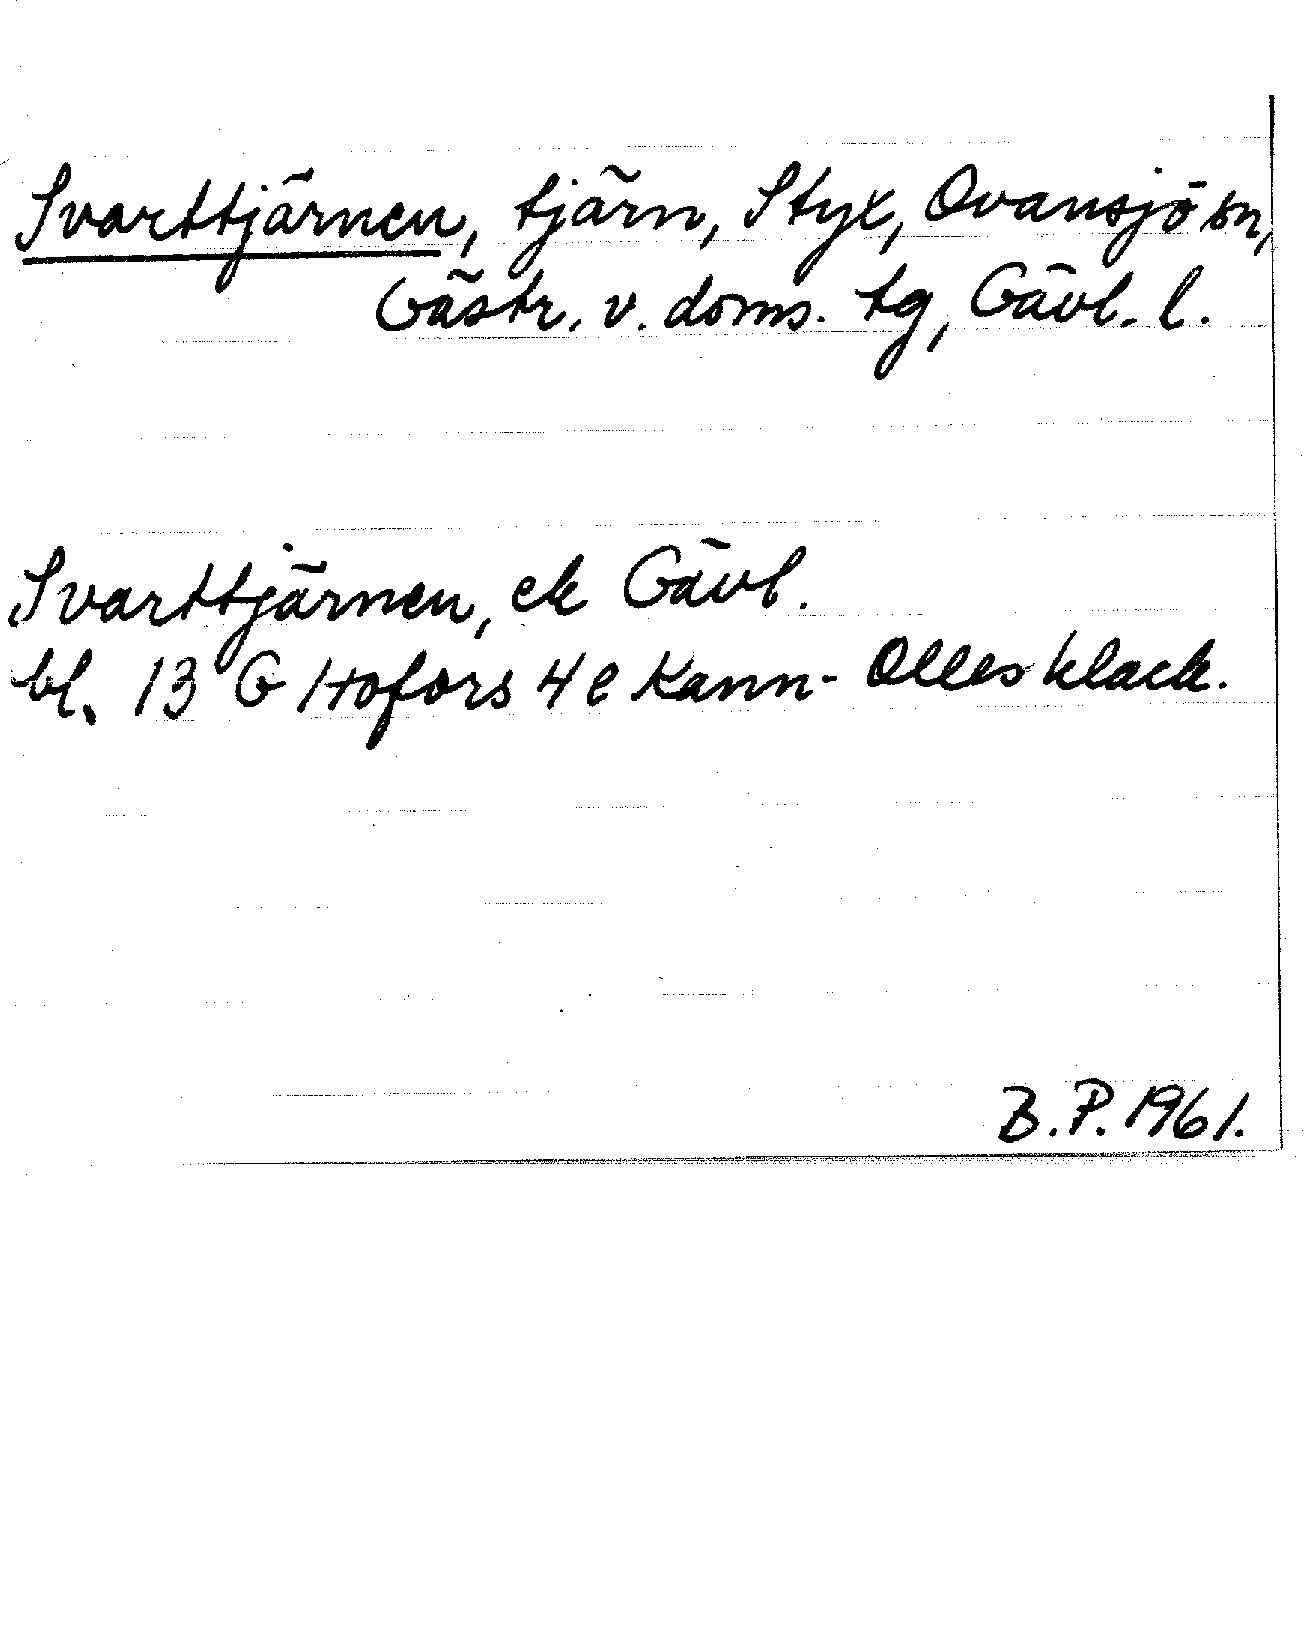 Svarttjärnen, tjärn, Styx, Ovansjö sn,
Gästr. v. doms. tg, Gävl. l.
Svarttjärnen, ek Gävl.
bl. 13 G Hofors 4 e Kann-Olles klack.
B.P. 1961.